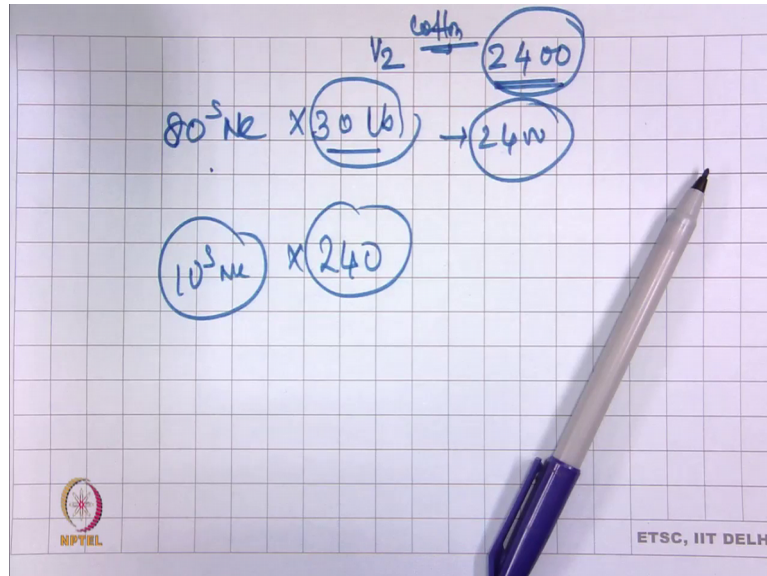 V2 Cotton 2400
80ˢ Ne × 30 lb → 2400
10ˢ Ne × 240
NPTEL
ETSC, IIT DELH